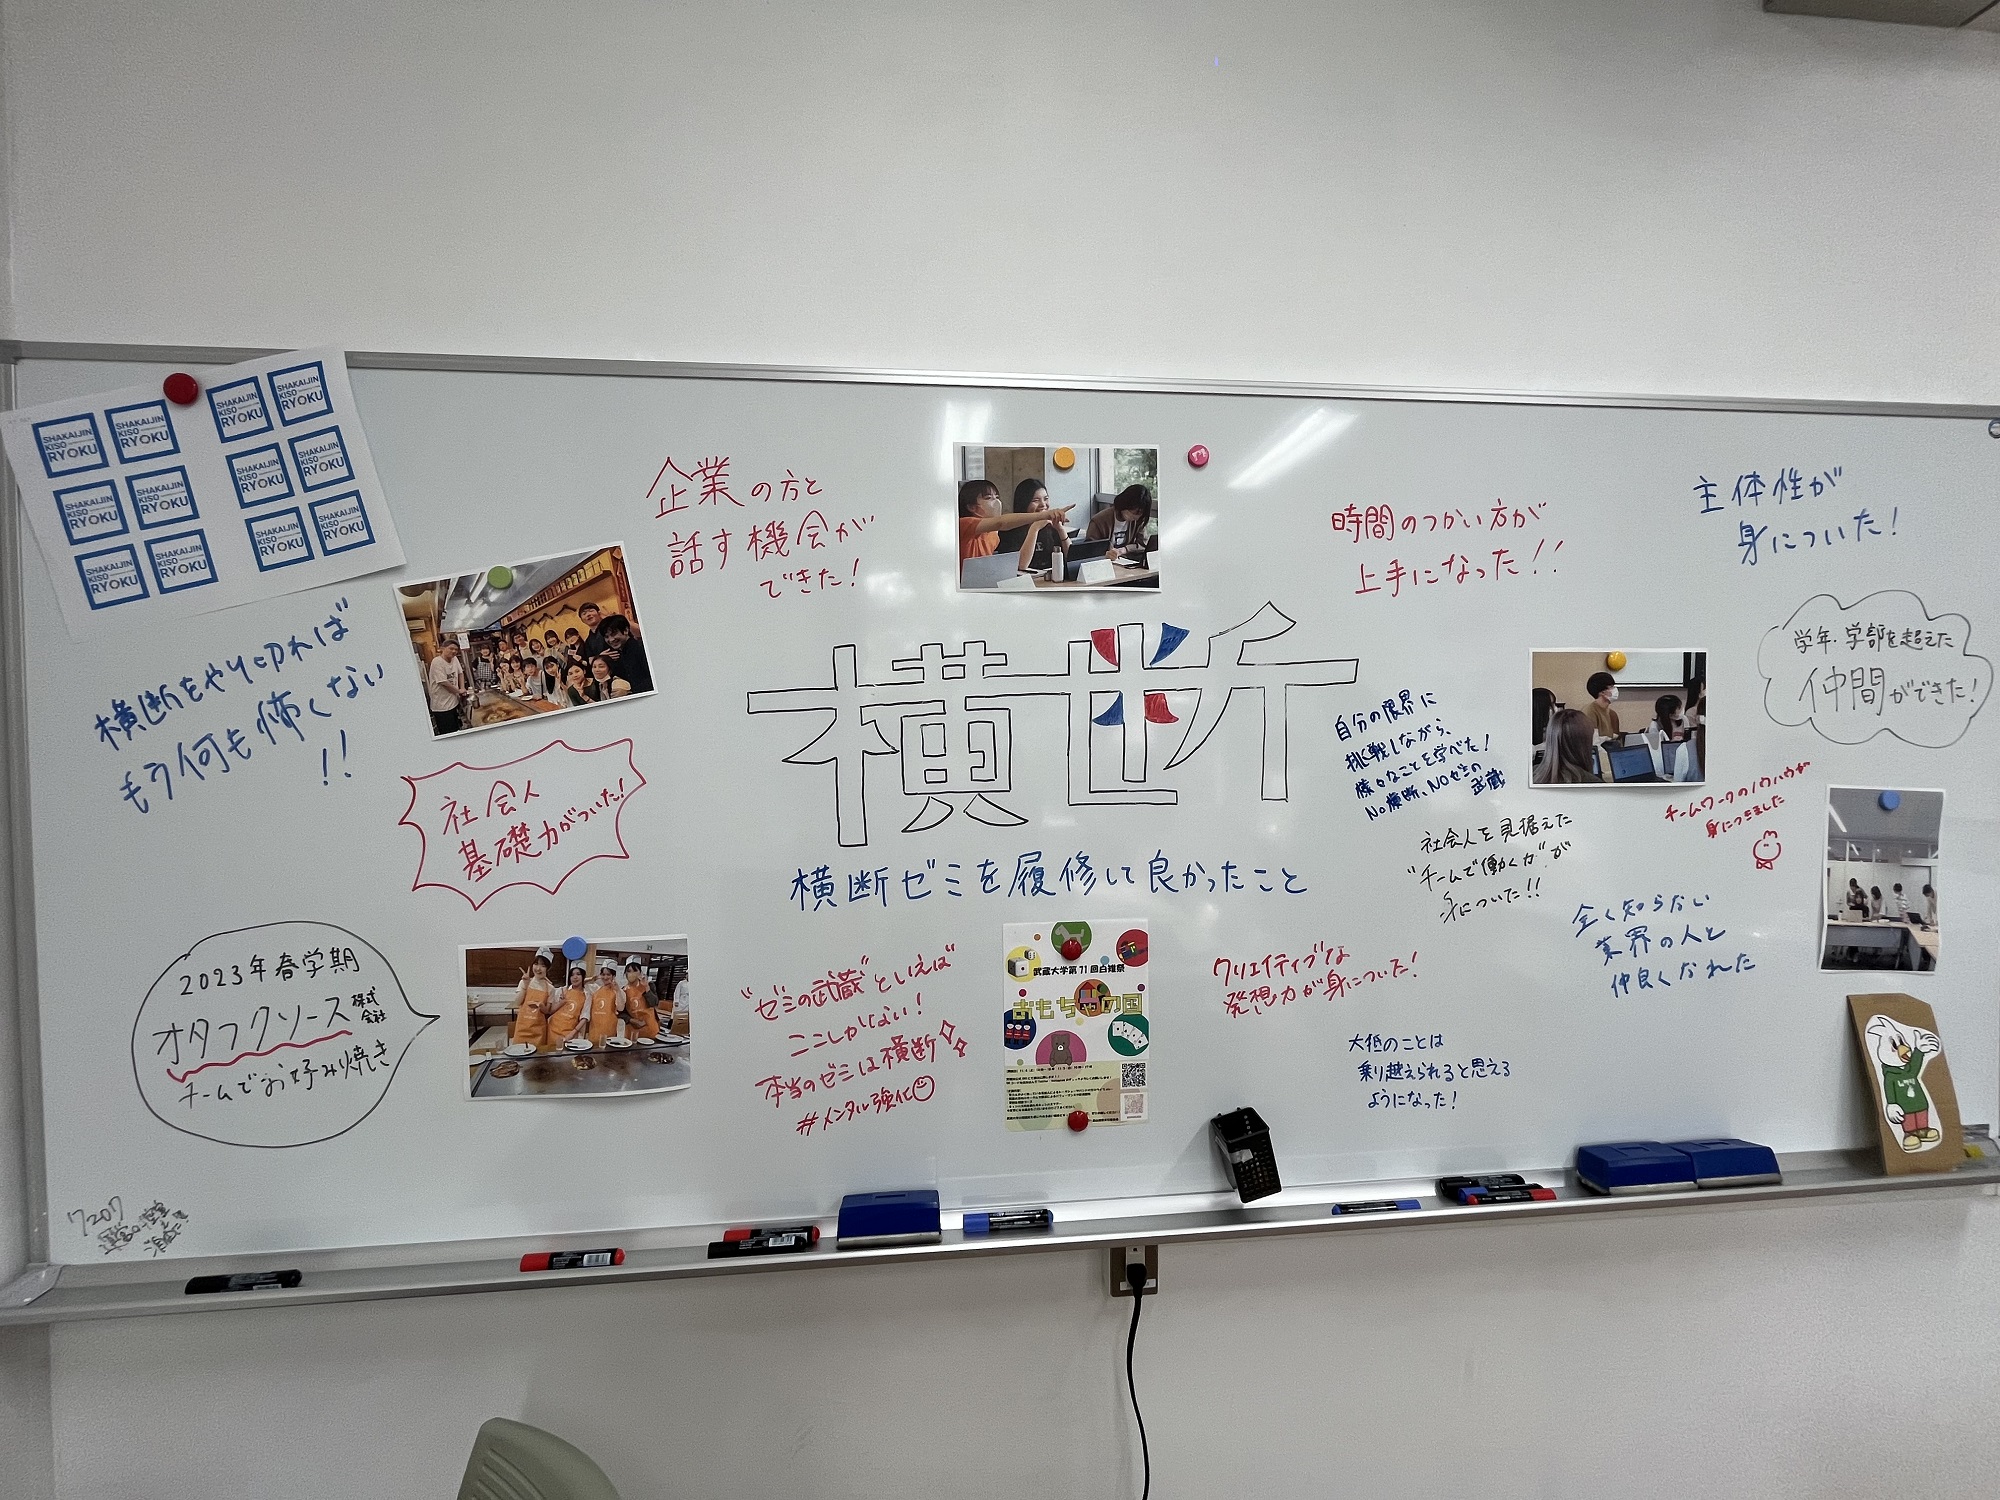 SHAKAIJIN
KISO
RYOKU
SHAKAIJIN
KISO
RYOKU
SHAKAIJIN
KISO
RYOKU
SHAKAIJIN
KISO
RYOKU
SHAKAIJIN
KISO
RYOKU
SHAKAIJIN
KISO
RYOKU
SHAKAIJIN
KISO
RYOKU
SHAKAIJIN
KISO
RYOKU
SHAKAIJIN
KISO
RYOKU
SHAKAIJIN
KISO
RYOKU
SHAKAIJIN
KISO
RYOKU
SHAKAIJIN
KISO
RYOKU
横断をやり切れば
もう何も怖くない
!!
企業の方と
話す機会が
できた!
時間のつかい方が
上手になった!!
主体性が
身についた!
学年・学部を超えた
仲間ができた!
社会人
基礎力がついた!
横断
横断ゼミを履修して良かったこと
自分の限界に
挑戦しながら、
様々なことを学べた!
No横断、NOゼミの
武蔵
社会人を見据えた
"チームで働く力"が
身についた!!
チームワークのノウハウが
身につきました
全く知らない
業界の人と
仲良くなれた
2023年春学期
オタフクソース株式会社
チームでお好み焼き
"ゼミの武蔵"といえば
ここしかない!
本当のゼミは横断
#メンタル強化
武蔵大学第71回白雉祭
おもちゃの国
クリエイティブな
発想力が身についた!
大抵のことは
乗り越えられると思える
ようになった!
7207